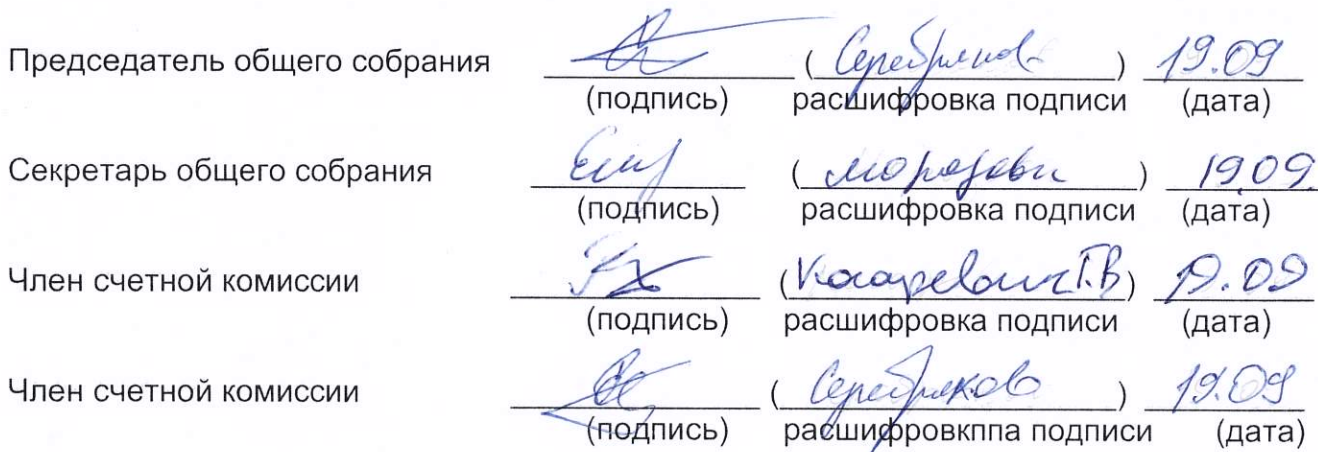 Председатель общего собрания (Серебряков) 19.09
(подпись) расшифровка подписи (дата)
Секретарь общего собрания () 19.09.
(подпись) расшифровка подписи (дата)
Член счетной комиссии (Т.В) 19.09
(подпись) расшифровка подписи (дата)
Член счетной комиссии (Серебряков) 19.09
(подпись) расшифровкппа подписи (дата)